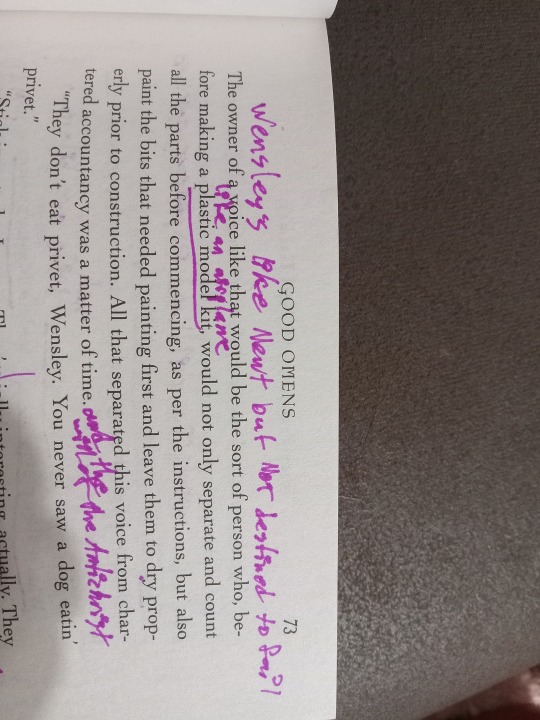 GOOD OMENS 73
Wensley's like Newt but not destined to fail
The owner of a voice like that would be the sort of person who, be-
like an airplane
fore making a plastic model kit, would not only separate and count
all the parts before commencing, as per the instructions, but also
paint the bits that needed painting first and leave them to dry prop-
erly prior to construction. All that separated this voice from char-
tered accountancy was a matter of time. and the will of the Antichrist
"They don't eat privet, Wensley. You never saw a dog eatin'
privet."
interesting, actually. They